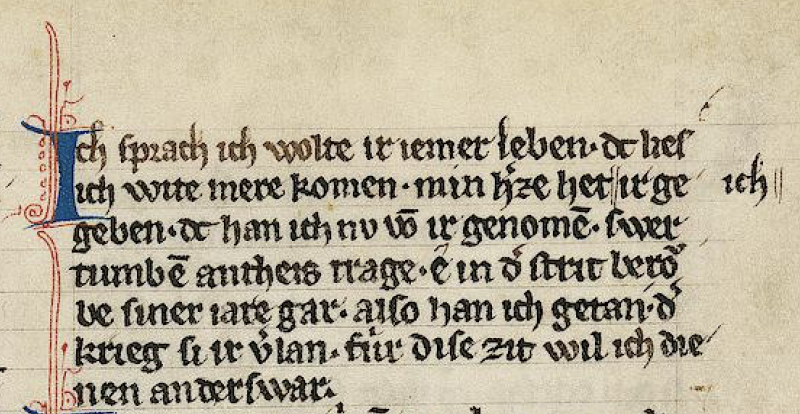 Ich sprach ich wolte ir iemer leben· dc lies
ich wite mere komen· min h̾ze het ir ge ich
geben· dc han ich nv vō ir genomē· swer
tumbē antheis trage· ē in d̾ strit berǒ
be siner iare gar· also han ich getan· d̾
krieg si ir v̾lan· für dise zit wil ich die
nen anderswar·